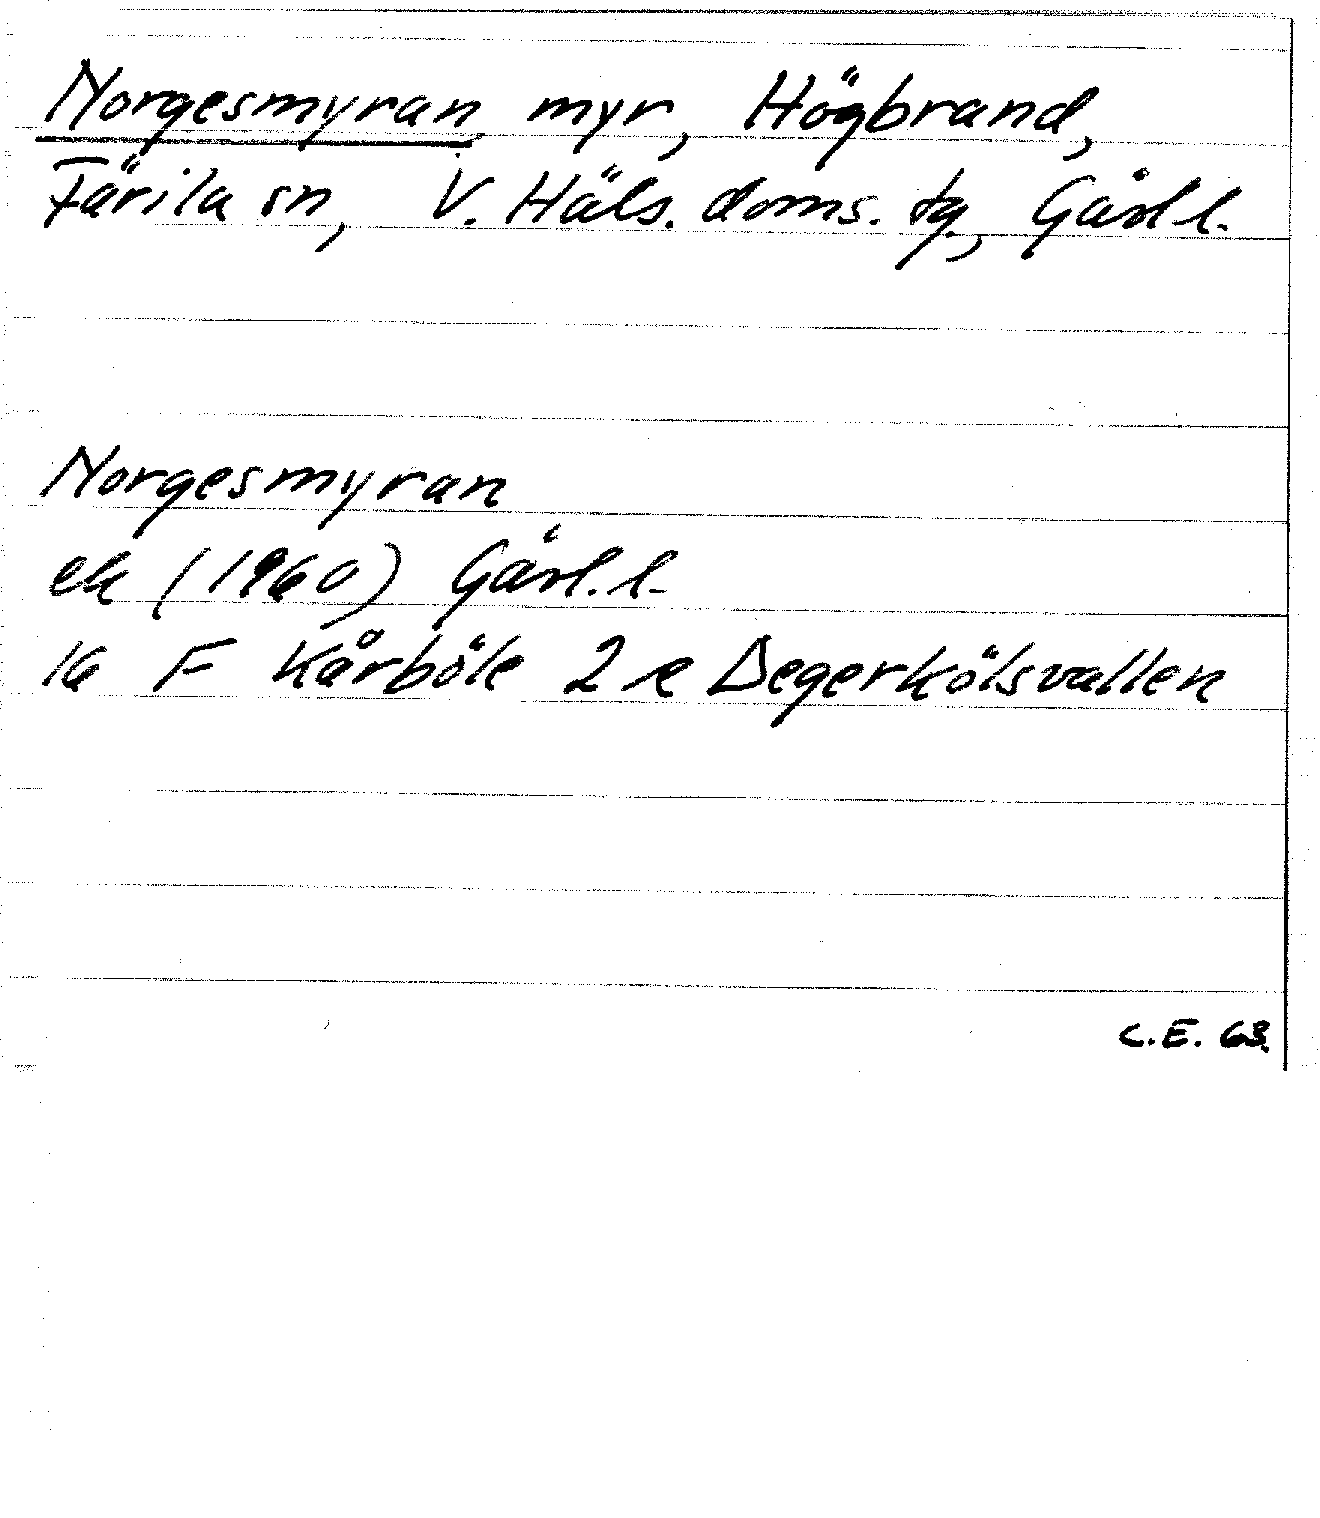 Norgesmyran, myr, Högbrand,
Färila sn, V. Häls. doms. tg., Gävl l.
Norgesmyran
ek (1960) Gävl. l.
16 F Kårböle 2 e Degerkölsvallen
C.E. 63.